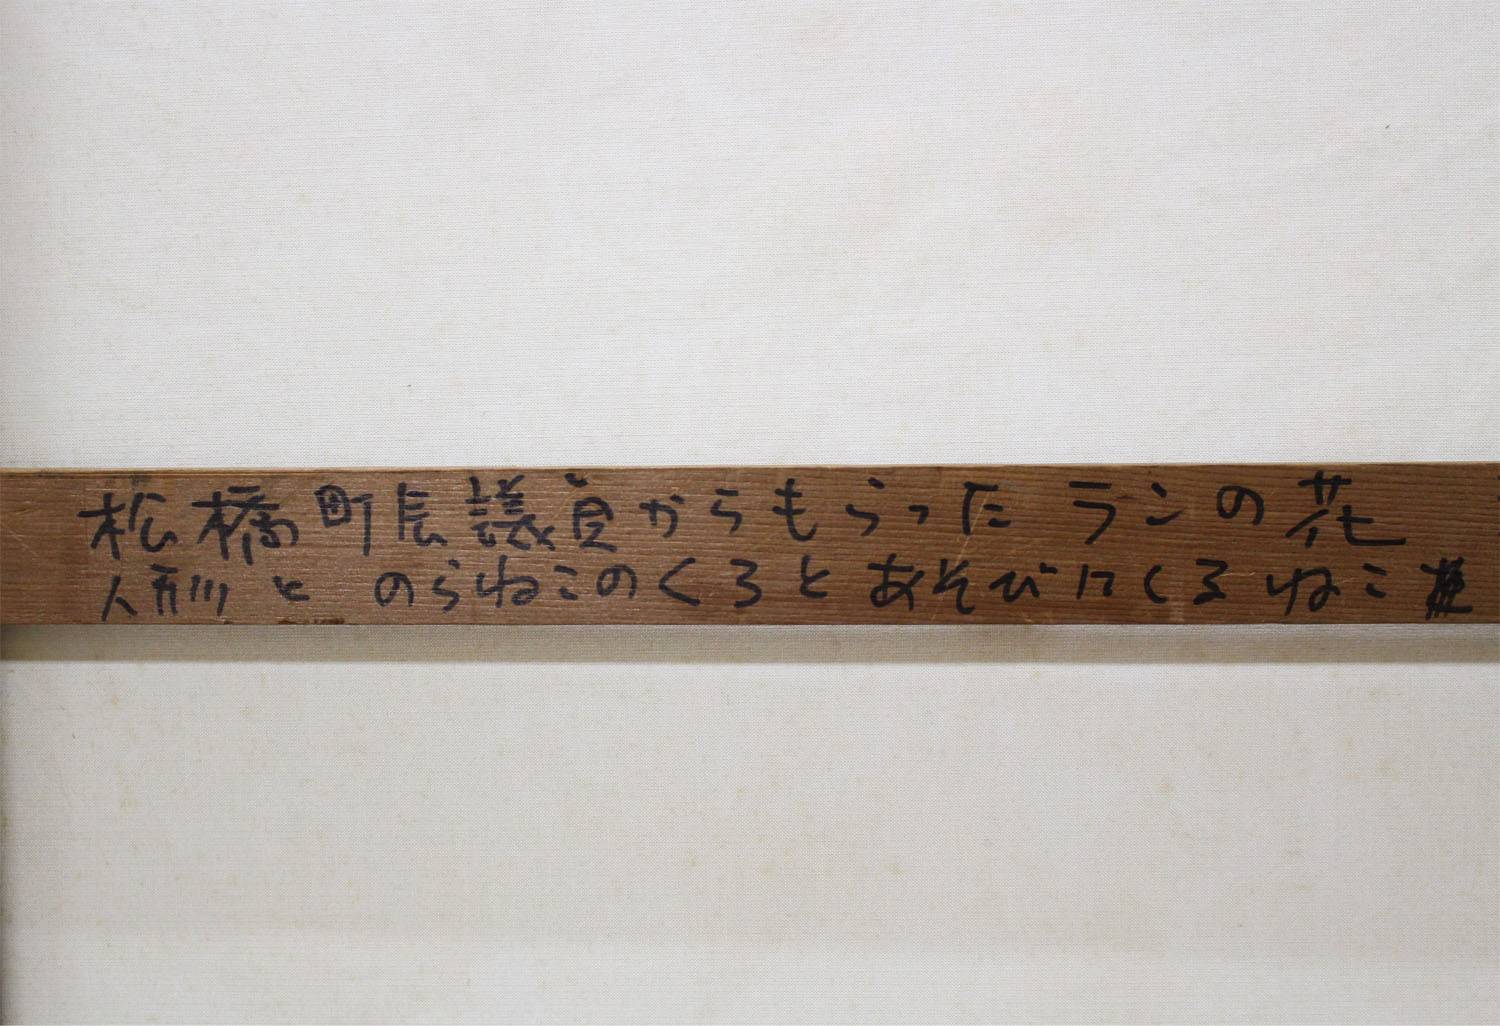 松橋町長議員からもらった ランの花
人形と のらねこのくろとあそびにくるねこ